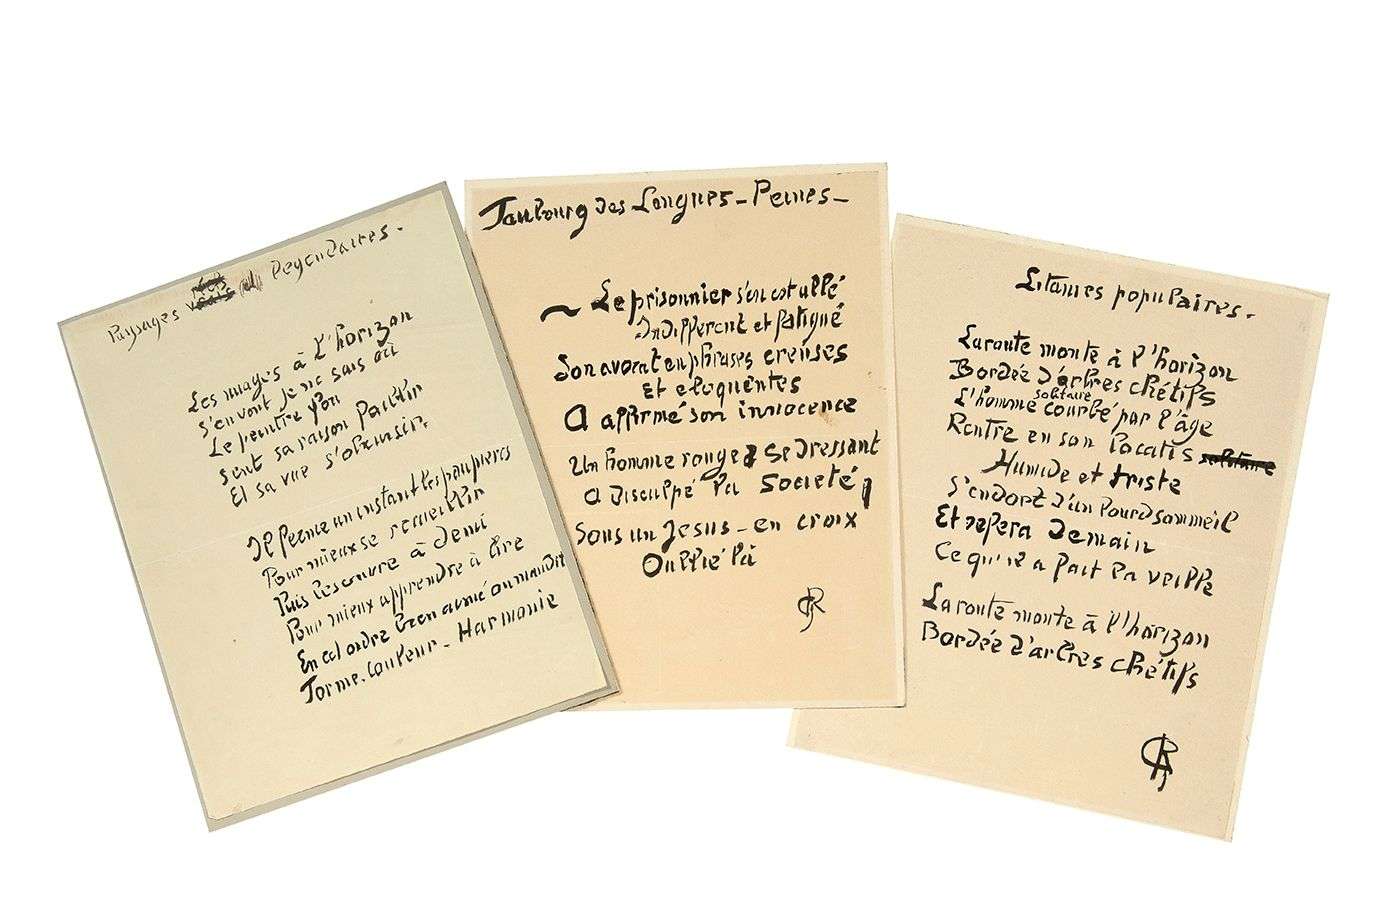 Paysages legendaires.
Les nuages à l'horizon
s'en vont je ne sais où
Le peintre fou
sent sa raison faiblir
Et sa vue s'obscursir.
Il ferme un instant les paupieres
Pour mieux se recueillir
Puis les ouvre à demi
Pour mieux apprendre à lire
En cet ordre bien aimé ou maudit
Forme. Couleur - Harmonie
Faubourg des Longues - Peines -
~ Le prisonnier s'en est allé
Indifferent et fatigué
Son avocat en phrases creuses
Et eloquentes
A affirmé son innocence
Un homme rouge se dressant
A disculpé la Societé
Sous un Jesus - en croix
Oublié là
GR
Litanies populaires.
La route monte à l'horizon
Bordée d'arbres chétifs
solitaire
L'homme courbé par l'âge
Rentre en son locatis
Humide et triste
S'endort d'un lourd sommeil
Et refera demain
Ce qu'il a fait la veille
La route monte à l'horizon
Bordée d'arbres chétifs
GR